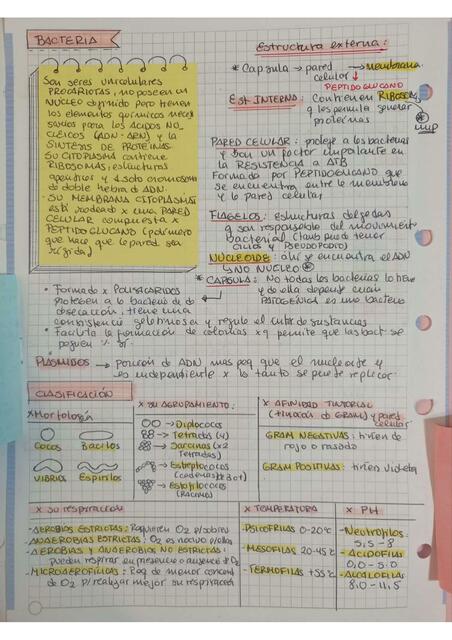 BACTERIA
Son seres unicelulares
PROCARIOTAS, no poseen un
NÚCLEO definido pero tienen
los elementos químicos nece
sarios para los ACIDOS NU_
CLEICOS (ADN-ARN) y la
SINTESIS DE PROTEINAS.
SU CITOPLASMA contiene
RIBOSOMAS, estructuras
y 1 solo cromosoma
de doble hebra de ADN.
· SU MEMBRANA CITOPLASMATI
está rodeado x una PARED
CELULAR compuesta x
PEPTIDOGLUCANO (polímero
que hace que la pared sea
rígida)
Estructura externa:
* Capsula → pared → membrana
celular
PEPTIDOGLUCANO
EST INTERNA: Contienen RIBOSOMAS
q les permite generar
proteínas
imp
PARED CELULAR: protege a las bacterias
y son un factor importante en
la RESISTENCIA a ATB
Formada por PEPTIDOGLICANO que
se encuentra entre la membrana
y la pared celular
FLAGELOS: estructuras delgadas
q son responsables del movimiento
bacterial (tamb puede tener
CILIOS y PSEUDOPODO)
NUCLEOIDE: ahí se encuentra el ADN
NO NUCLEO
* CAPSULA: No todas las bacterias lo tiene
y de ella depende cuan
PATOGENICA es una bacteria
· Formado x POLISACARIDOS
protegen a la bacteria de la
desecación, tiene una
consistencia gelatinosa y regula el de sustancias
· Facilita la formación de colonias xq permite que las bact se
peguen % sí.
PLASMIDOS → porción de ADN mas peq que el nucleoide y
es independiente x lo tanto se puede replicar.
CLASIFICACIÓN
* Morfología
COCOS BACILOS
VIBRIOS ESPIRILOS
* SU AGRUPAMIENTO:
→ Diplococos
→ Tetradas (4)
→ Sarcinas (x2
Tetradas)
→ Estreptococos
(cadenas de bot)
→ Estafilococos
(Racimos)
* AFINIDAD TINTORIAL
(TINCION de GRAM) y pared
celular
GRAM NEGATIVAS: tiñen de
rojo o rosado
GRAM POSITIVAS: tiñen violeta
* SU RESPIRACION
- AEROBIOS ESTRICTAS: Requieren O2 p/sobrev
- ANAEROBIAS ESTRICTAS: O2 es nocivo p/ellas
- AEROBIAS Y ANAEROBIOS NO ESTRICTAS:
pueden respirar en presencia o ausencia de O2
- MICROAEROFILICAS: Req de menor concent
de O2 p/realizar mejor su respiracion
* TEMPERATURA
- PSICOFILAS 0-20°C
- MESOFILAS 20-45°C
- TERMOFILAS +55°C
* PH
- Neutrofilos
5,5 - 8
- ACIDOFILAS
0,0 - 5.0
- ALCALOFILAS
8,0 - 11,5